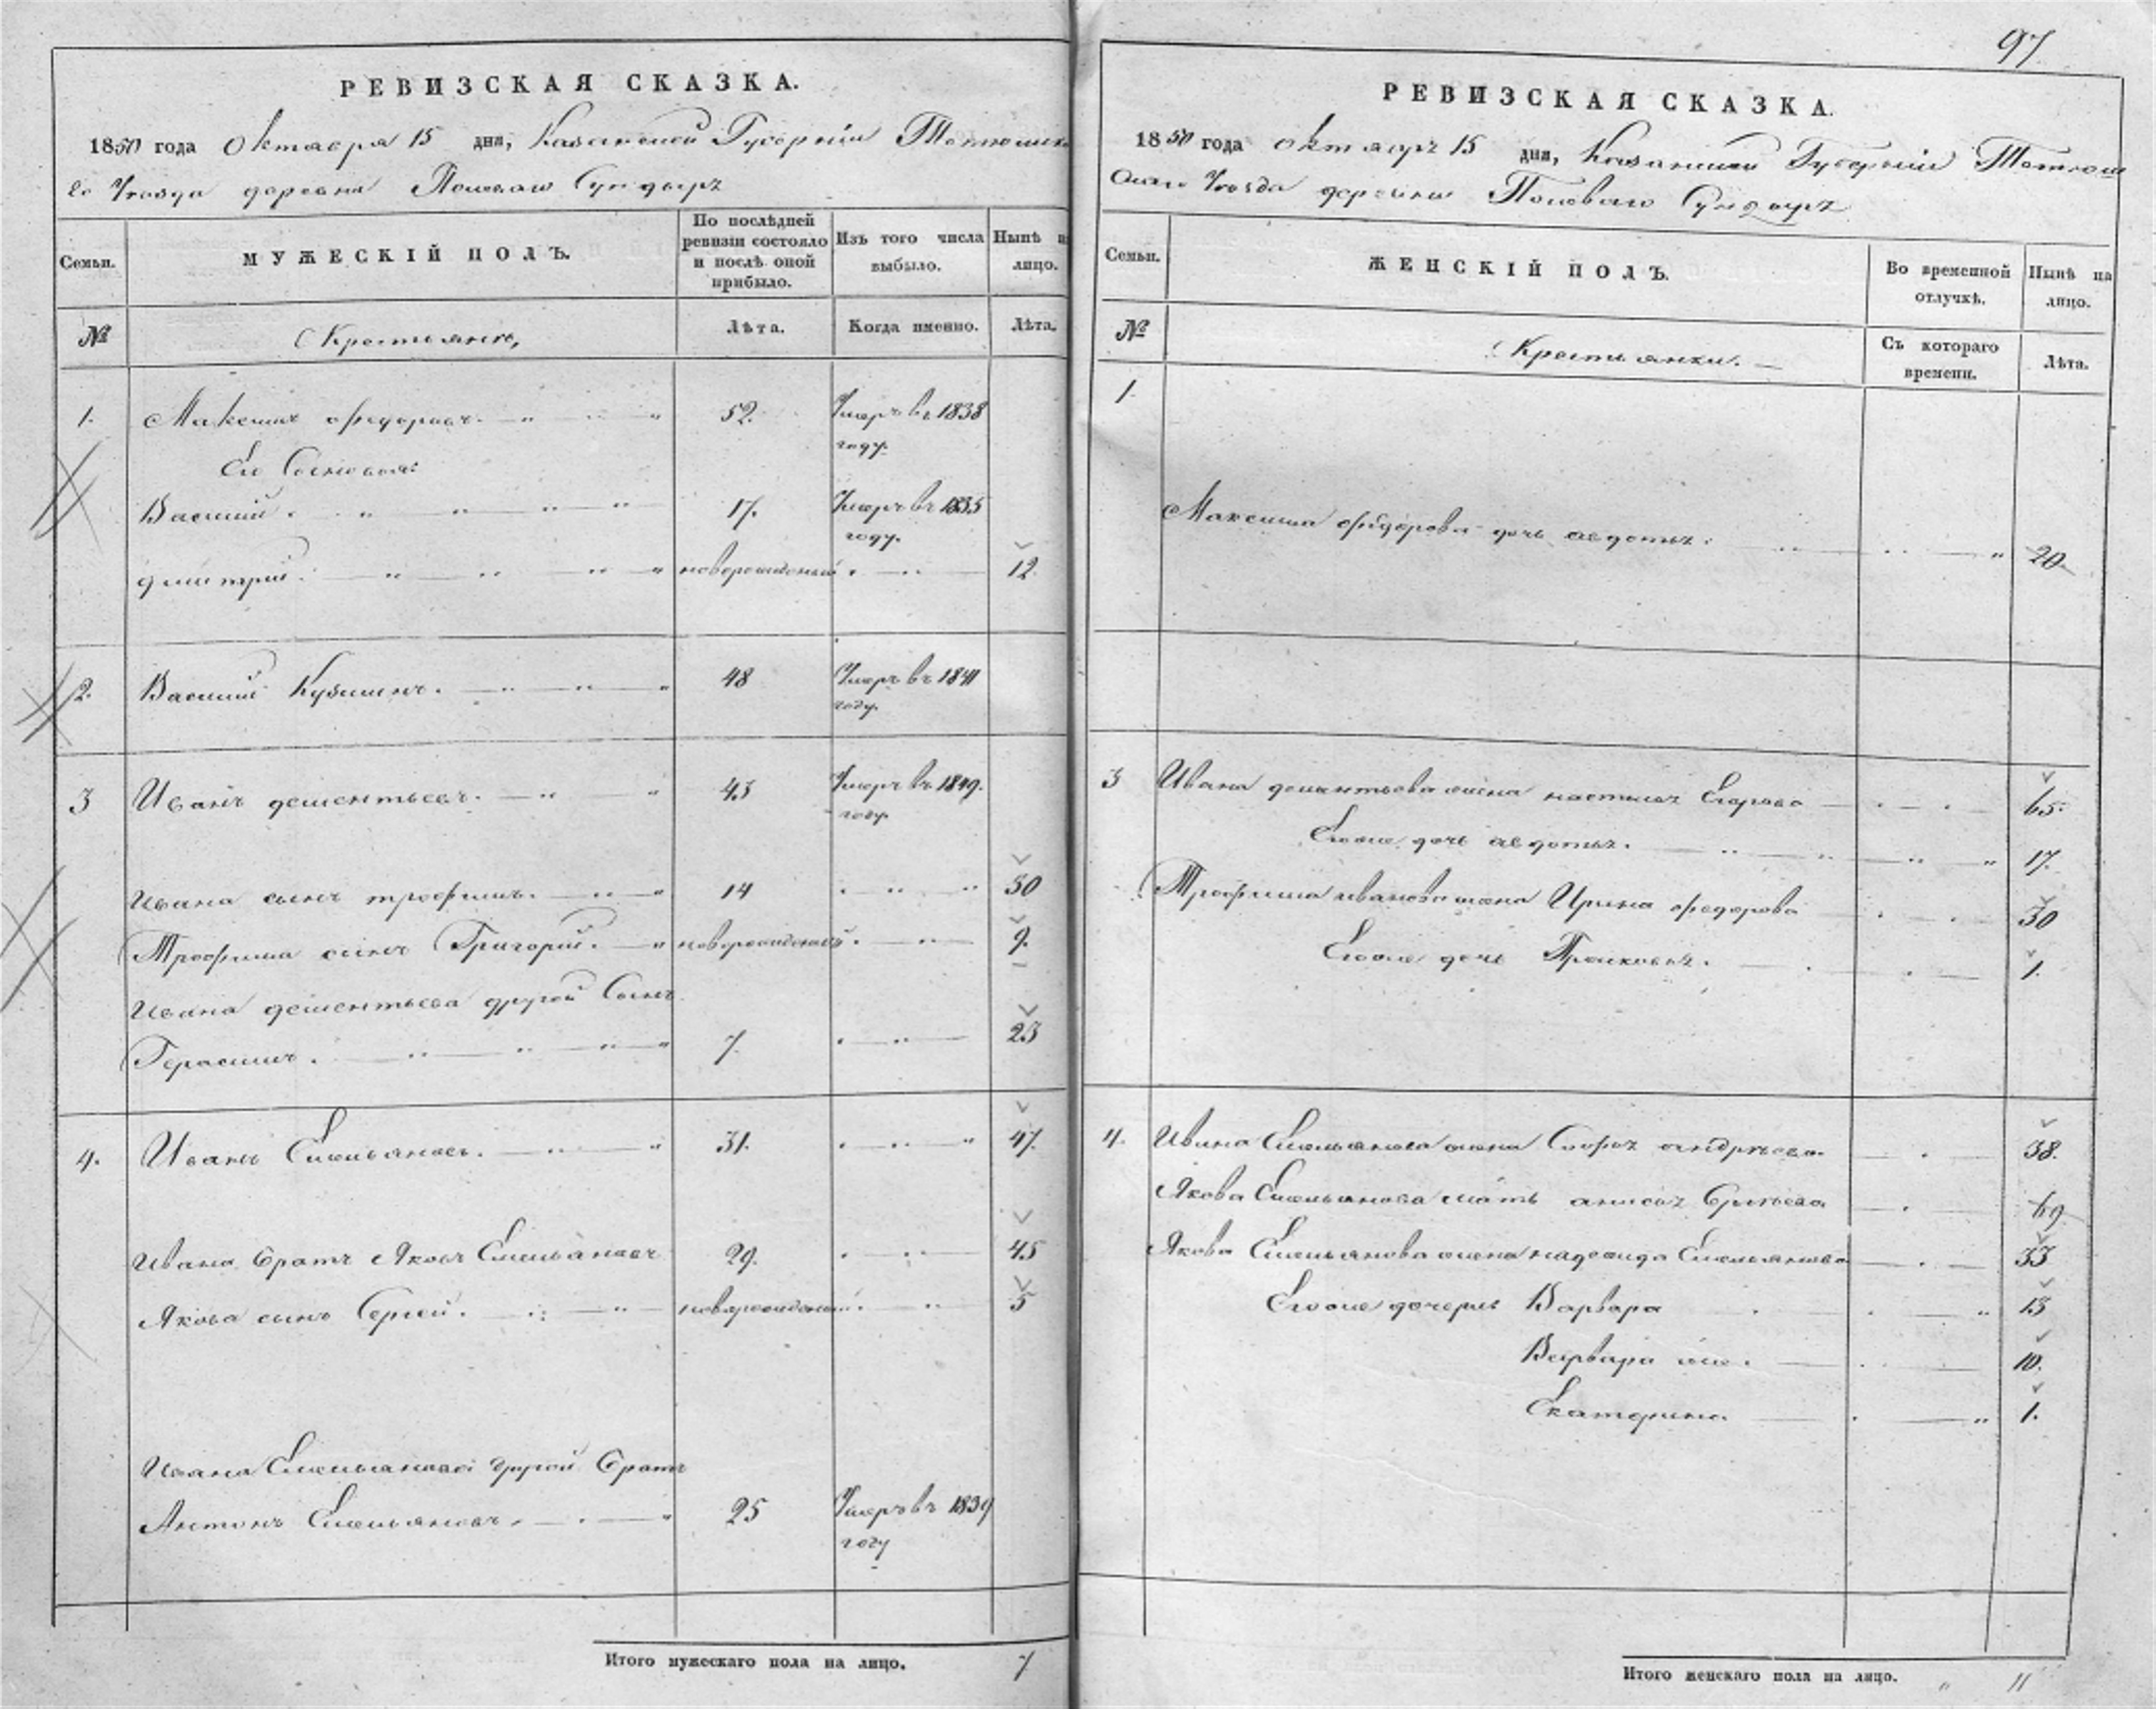 97
РЕВИЗСКАЯ СКАЗКА.
1850 года Октября 15 дня, Казанской Губернiи Тетюшска
го Уезда деревни Полеваго Сундыря
Семьи. МУЖЕСКIЙ ПОЛЪ. По послѣдней ревизiи состояло и послѣ оной прибыло. Изъ того числа выбыло. Нынѣ на лицо.
№ Крестьяне, Лѣта. Когда именно. Лѣта.
1. Максимъ Федоровъ. 52. Умеръ въ 1838
году.
Его Сыновья:
Василий. 17. Умеръ въ 1835
году.
Дмитрiй. новорожденный 12.
2. Василий Кузминъ. 48 Умеръ въ 1841
году.
3 Иванъ Дементьевъ. 43 Умеръ въ 1849.
году
Ивана сынъ Трофимъ. 14 30
Трофима сынъ Григорiй. новорожденный. 9.
Ивана Дементьева другой Сынъ
Герасимъ. 7. 23
4. Иванъ Емельяновъ. 31. 47.
Ивана братъ Яковъ Емельяновъ 29. 45
Якова сынъ Сергей. новорожденный. 5
Ивана Емельянова другой братъ
Антонъ Емельяновъ. 25 Умеръ въ 1839
году
Итого мужескаго пола на лицо. 7
РЕВИЗСКАЯ СКАЗКА.
1850 года Октября 15 дня, Казанской Губернiи Тетюш
скаго Уезда деревни Полеваго Сундыря
Семьи. ЖЕНСКIЙ ПОЛЪ. Во временной отлучкѣ. Нынѣ на лицо.
№ Крестьянки. Съ котораго времени. Лѣта.
1.
Максима Федорова дочь Авдотья. 20.
3 Ивана Дементьева жена Настасья Егорова 65.
Егоже дочь Авдотья. 17.
Трофима Иванова жена Ирина Федорова 30
Егоже дочь Прасковья. 1.
4. Ивана Емельянова жена Софья Андреева. 38.
Якова Емельянова мать Анисья 69
Якова Емельянова жена Надежда Емельянова 33
Егоже дочери Варвара 13
Варвара же. 10.
Екатерина 1.
Итого женскаго пола на лицо. 11